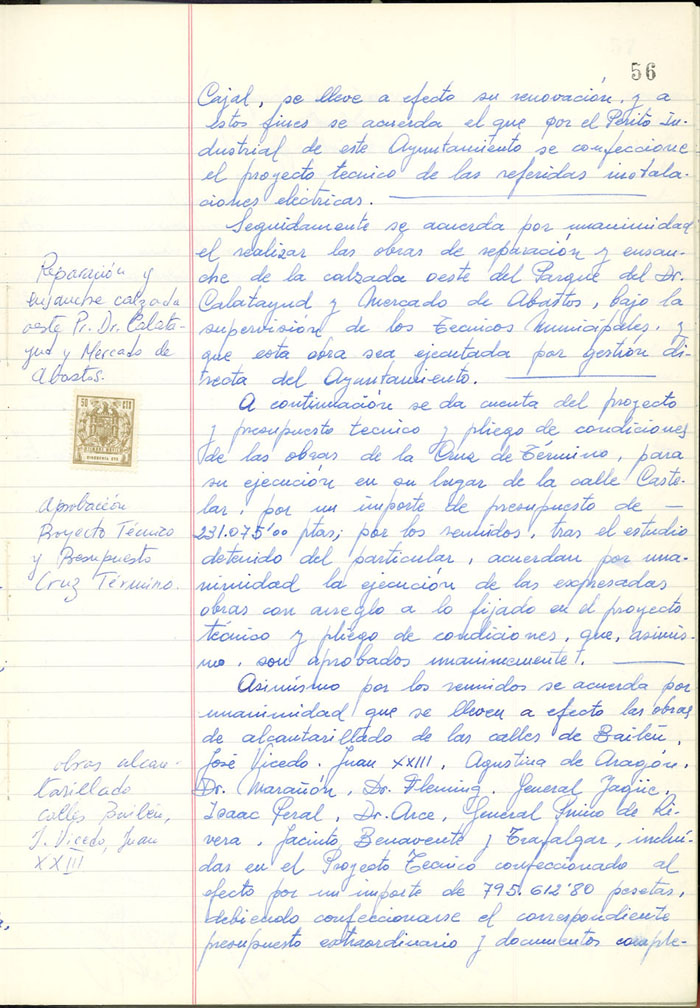 56
Cajal, se lleve a efecto su renovación, y a
estos fines se acuerda el que por el Perito In-
dustrial de este Ayuntamiento se confeccione
el proyecto tecnico de las referidas instala-
ciones eléctricas.
Seguidamente se acuerda por unanimidad
el realizar las obras de reparación y ensan-
che de la calzada oeste del Parque del Dr.
Calatayud y Mercado de Abastos, bajo la
supervisión de los Tecnicos Municipales, y
que esta obra sea ejecutada por gestión di-
recta del Ayuntamiento.
Reparación y
ensanche calzada
oeste Pr. Dr. Calata-
yud y Mercado de
Abastos.
A continuación se da cuenta del proyecto
y presupuesto tecnico y pliego de condiciones
de las obras de la Cruz de Término, para
su ejecución en su lugar de la calle Caste-
lar, por un importe de presupuesto de —
231.075'00 ptas; por los reunidos, tras el estudio
detenido del particular, acuerdan por una-
nimidad la ejecución de las expresadas
obras con arreglo a lo fijado en el proyecto
técnico y pliego de condiciones, que, asimis-
mo, son aprobados unanimemente.
50 CTS
Aprobación
Proyecto Técnico
y Presupuesto
Cruz Término.
Asimismo por los reunidos se acuerda por
unanimidad que se lleven a efecto las obras
de alcantarillado de las calles de Bailén,
José Vicedo, Juan XXIII, Agustina de Aragón,
Dr. Marañón, Dr. Fleming, General Yagüe,
Isaac Peral, Dr. Arce, General Primo de Ri-
vera, Jacinto Benavente y Trafalgar, incluí-
das en el Proyecto Tecnico confeccionado al
efecto por un importe de 795.612'80 pesetas,
debiendo confeccionarse el correspondiente
presupuesto extraordinario y documentos comple-
obras alcan-
tarillado
calles Bailén,
J. Vicedo, Juan
XXIII